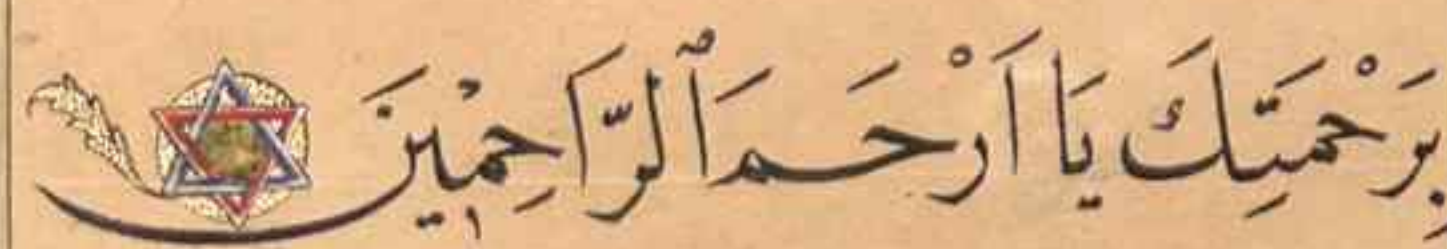 بِرَحْمَتِكَ يَا اَرْحَمَ ٱلرَّاحِمِينَ